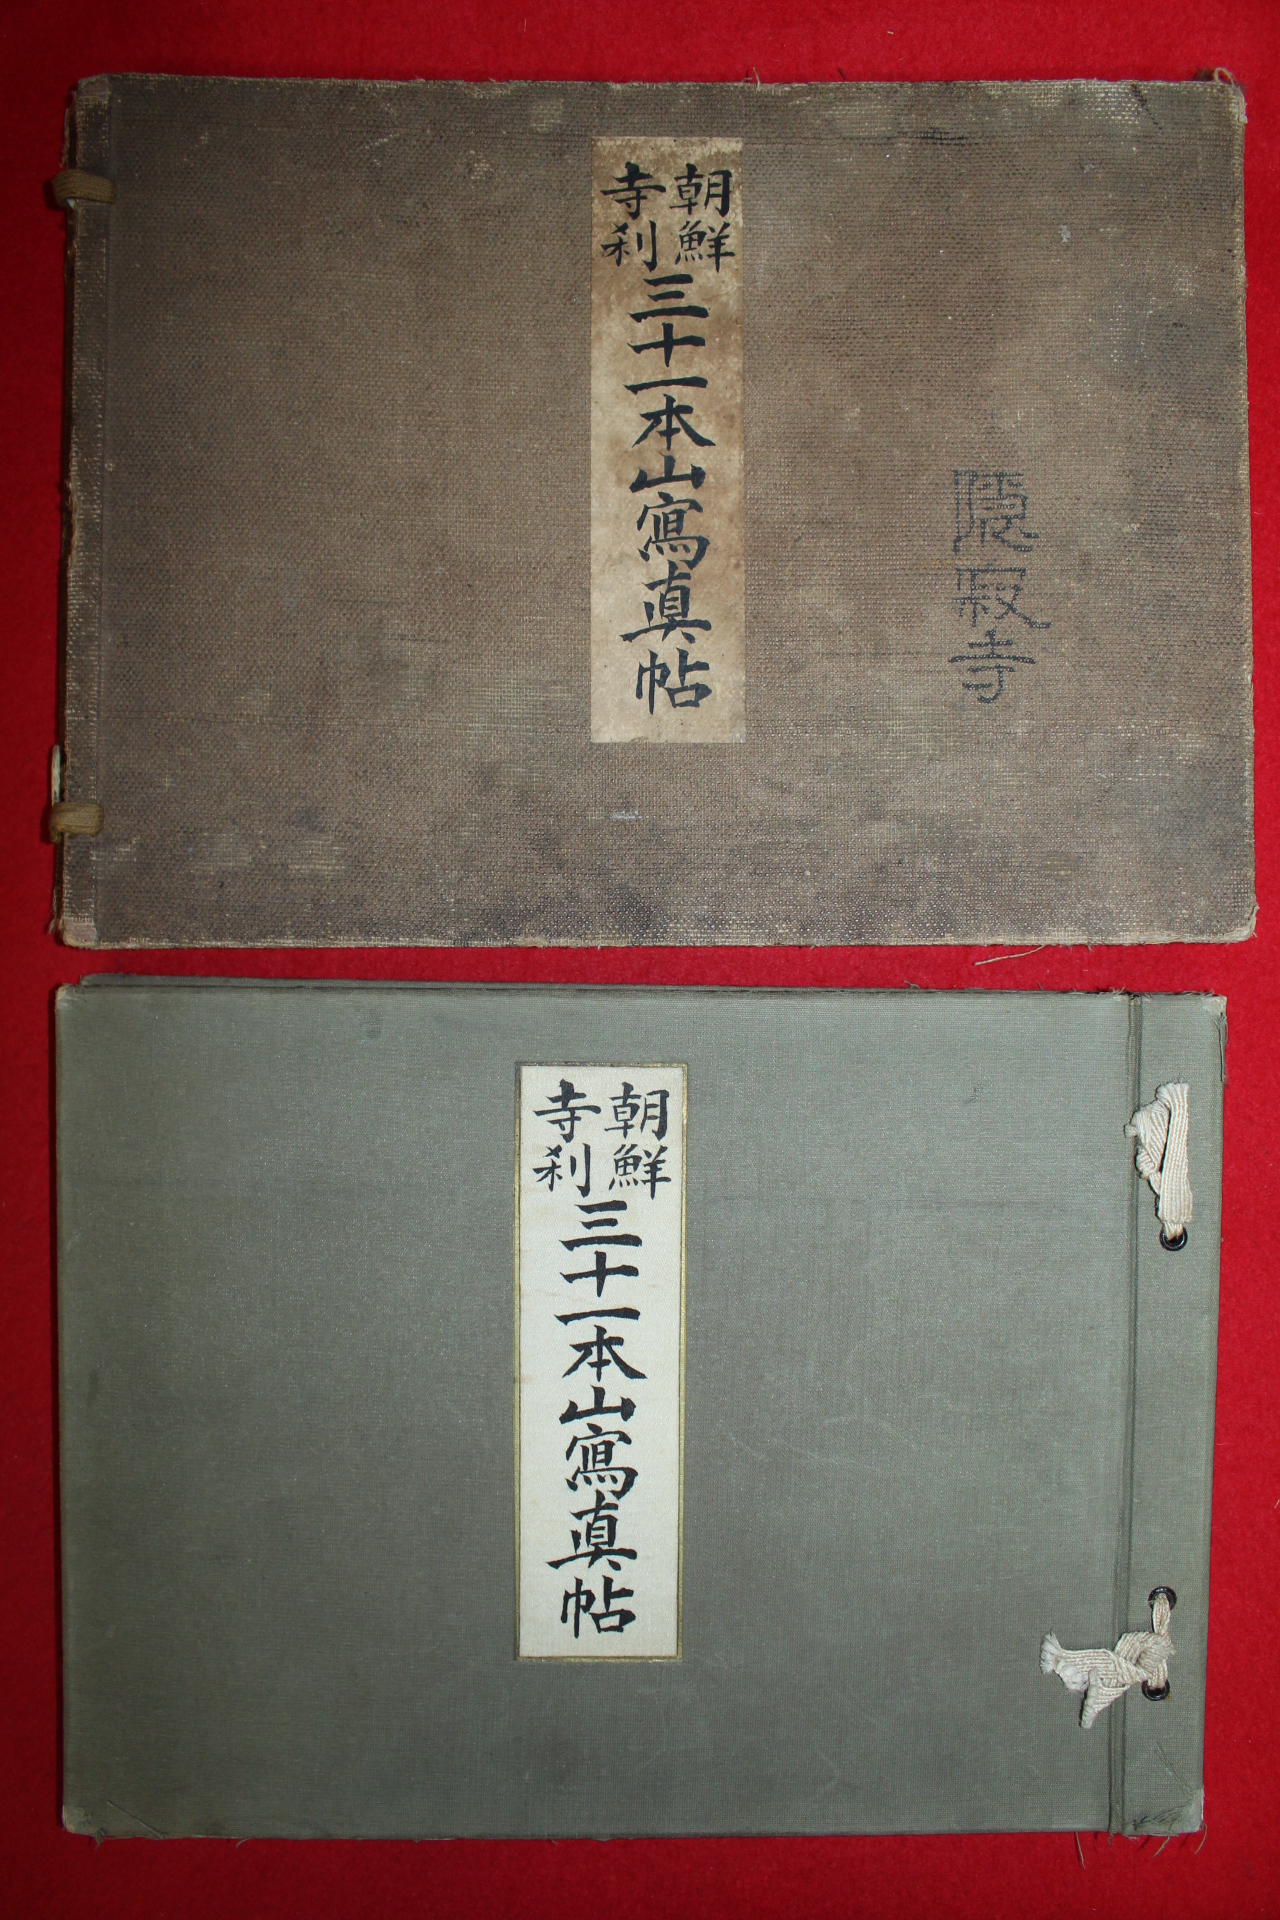 朝鮮
寺刹
三十一本山寫眞帖
隱寂寺
朝鮮
寺刹
三十一本山寫眞帖